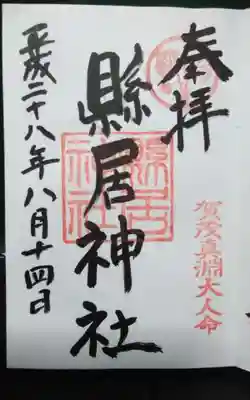 奉拝
賀茂真淵大人命
縣居神社
縣居神社
平成二十八年八月十四日